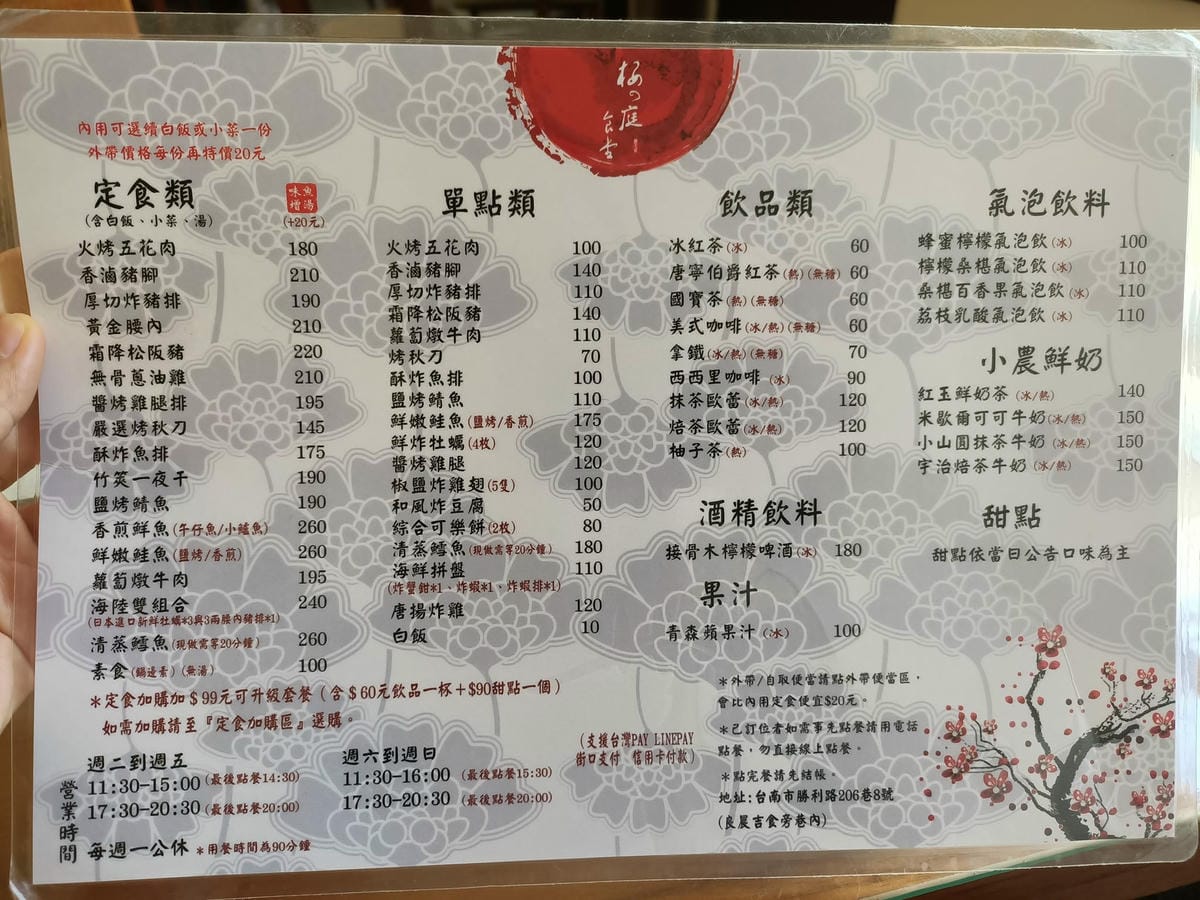 梅の庭
食堂
內用可選續白飯或小菜一份
外帶價格每份再特價20元
定食類
(含白飯、小菜、湯)
味噌魚湯
(+20元)
火烤五花肉 180
香滷豬腳 210
厚切炸豬排 190
黃金腰內 210
霜降松阪豬 220
無骨蔥油雞 210
醬烤雞腿排 195
嚴選烤秋刀 145
酥炸魚排 175
竹筴一夜干 190
鹽烤鯖魚 190
香煎鮮魚(午仔魚/小鱸魚) 260
鮮嫩鮭魚(鹽烤/香煎) 260
蘿蔔燉牛肉 195
海陸雙組合 240
(日本進口新鮮牡蠣*3與3兩腰內豬排*1)
清蒸鱈魚(現做需等20分鐘) 260
素食(鍋邊素)(無湯) 100
*定食加購加$99元可升級套餐(含$60元飲品一杯+$90甜點一個)
如需加購請至『定食加購區』選購。
單點類
火烤五花肉 100
香滷豬腳 140
厚切炸豬排 110
霜降松阪豬 140
蘿蔔燉牛肉 110
烤秋刀 70
酥炸魚排 100
鹽烤鯖魚 110
鮮嫩鮭魚(鹽烤/香煎) 175
鮮炸牡蠣(4枚) 120
醬烤雞腿 120
椒鹽炸雞翅(5隻) 100
和風炸豆腐 50
綜合可樂餅(2枚) 80
清蒸鱈魚(現做需等20分鐘) 180
海鮮拼盤 110
(炸蟹鉗*1、炸蝦*1、炸蝦排*1)
唐揚炸雞 120
白飯 10
飲品類
冰紅茶(冰) 60
唐寧伯爵紅茶(熱)(無糖) 60
國寶茶(熱)(無糖) 60
美式咖啡(冰/熱)(無糖) 60
拿鐵(冰/熱)(無糖) 70
西西里咖啡(冰) 90
抹茶歐蕾(冰/熱) 120
焙茶歐蕾(冰/熱) 120
柚子茶(熱) 100
酒精飲料
接骨木檸檬啤酒(冰) 180
果汁
青森蘋果汁(冰) 100
氣泡飲料
蜂蜜檸檬氣泡飲(冰) 100
檸檬桑椹氣泡飲(冰) 110
桑椹百香果氣泡飲(冰) 110
荔枝乳酸氣泡飲(冰) 110
小農鮮奶
紅玉鮮奶茶(冰/熱) 140
米歇爾可可牛奶(冰/熱) 150
小山圓抹茶牛奶(冰/熱) 150
宇治焙茶牛奶(冰/熱) 150
甜點
甜點依當日公告口味為主
*外帶/自取便當請點外帶便當區,
會比內用定食便宜$20元。
*已訂位者如需事先點餐請用電話
點餐,勿直接線上點餐。
*點完餐請先結帳。
地址:台南市勝利路206巷8號
(良晨吉食旁巷內)
(支援台灣PAY LINEPAY
街口支付 信用卡付款)
營業時間
週二到週五
11:30-15:00(最後點餐14:30)
17:30-20:30(最後點餐20:00)
週六到週日
11:30-16:00(最後點餐15:30)
17:30-20:30(最後點餐20:00)
每週一公休 *用餐時間為90分鐘